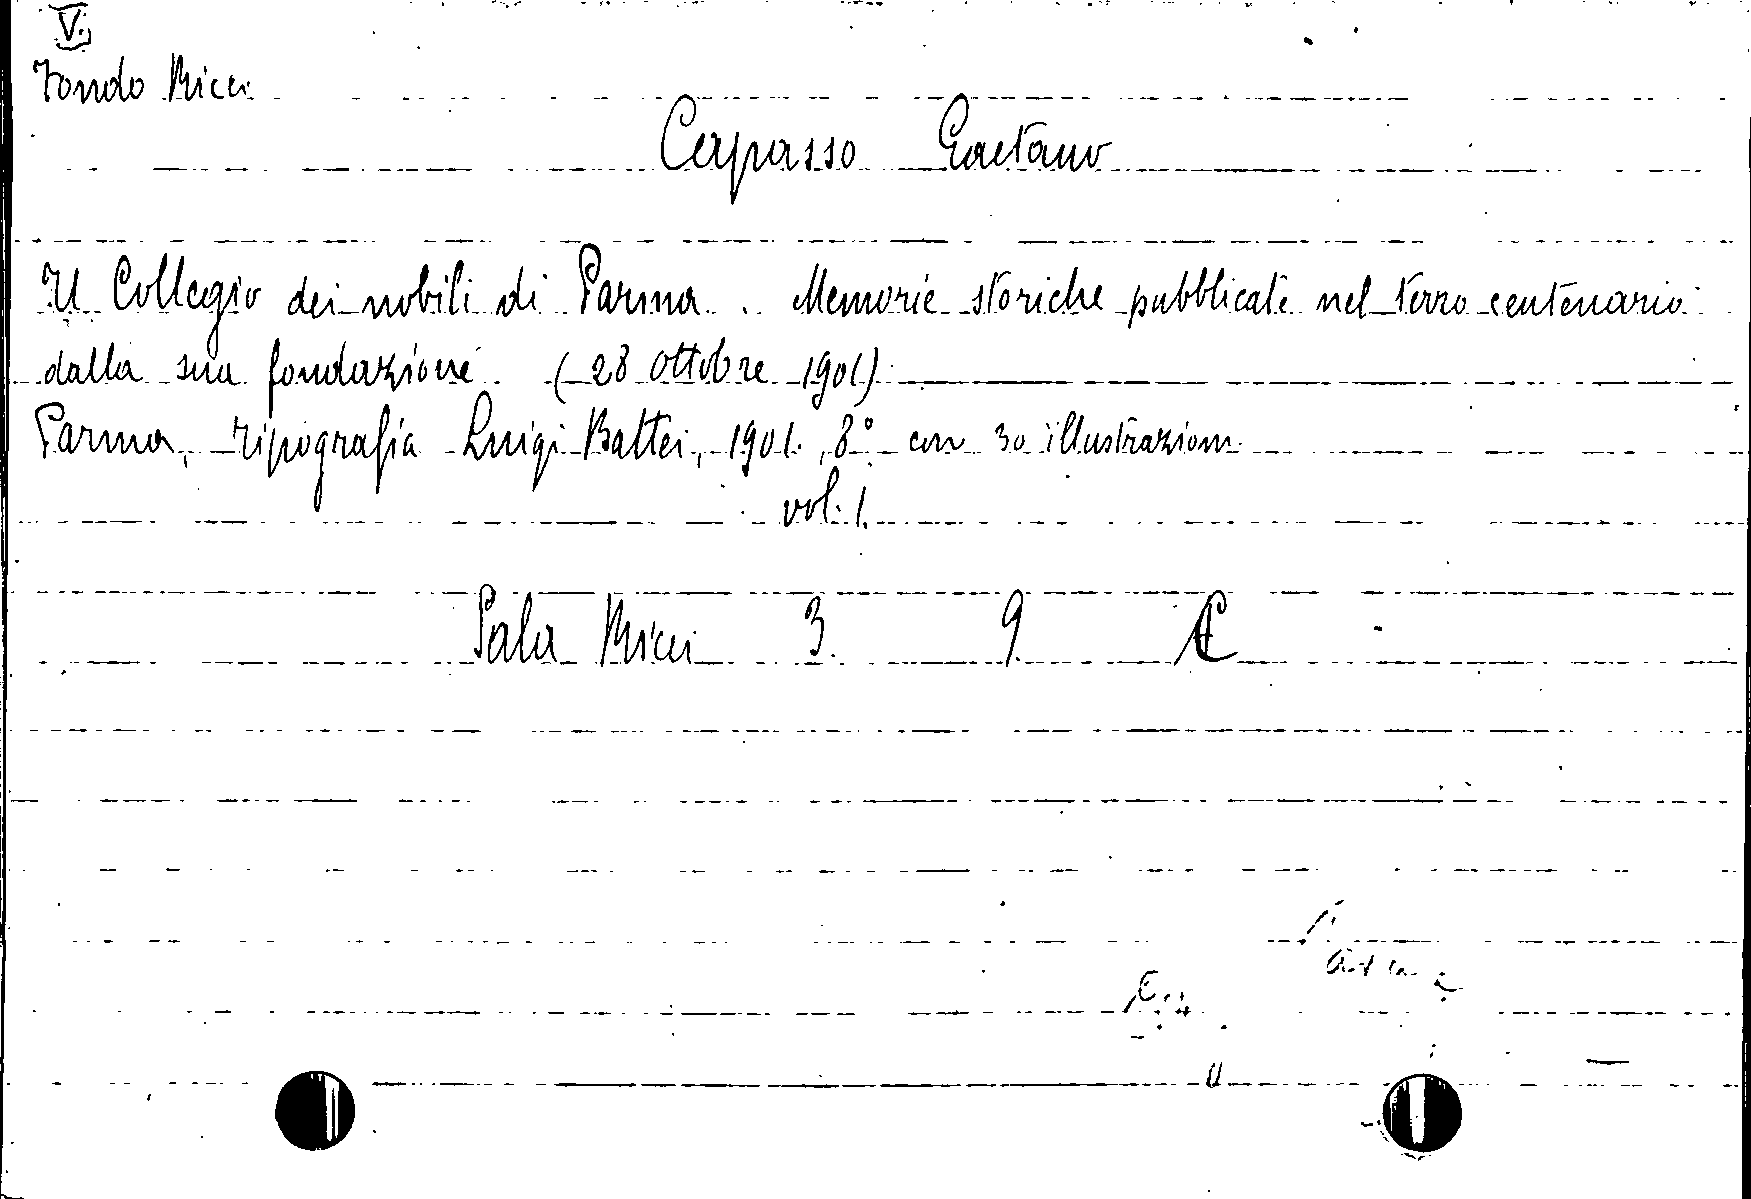 V.
Fondo Ricci
Capasso Gaetano
Il Collegio dei nobili di Parma. Memorie storiche pubblicate nel terzo centenario
dalla sua fondazione (28 ottobre 1901)
Parma, tipografia Luigi Battei, 1901., 8° con 30 illustrazioni
vol. 1.
Sala Ricci 3. 9